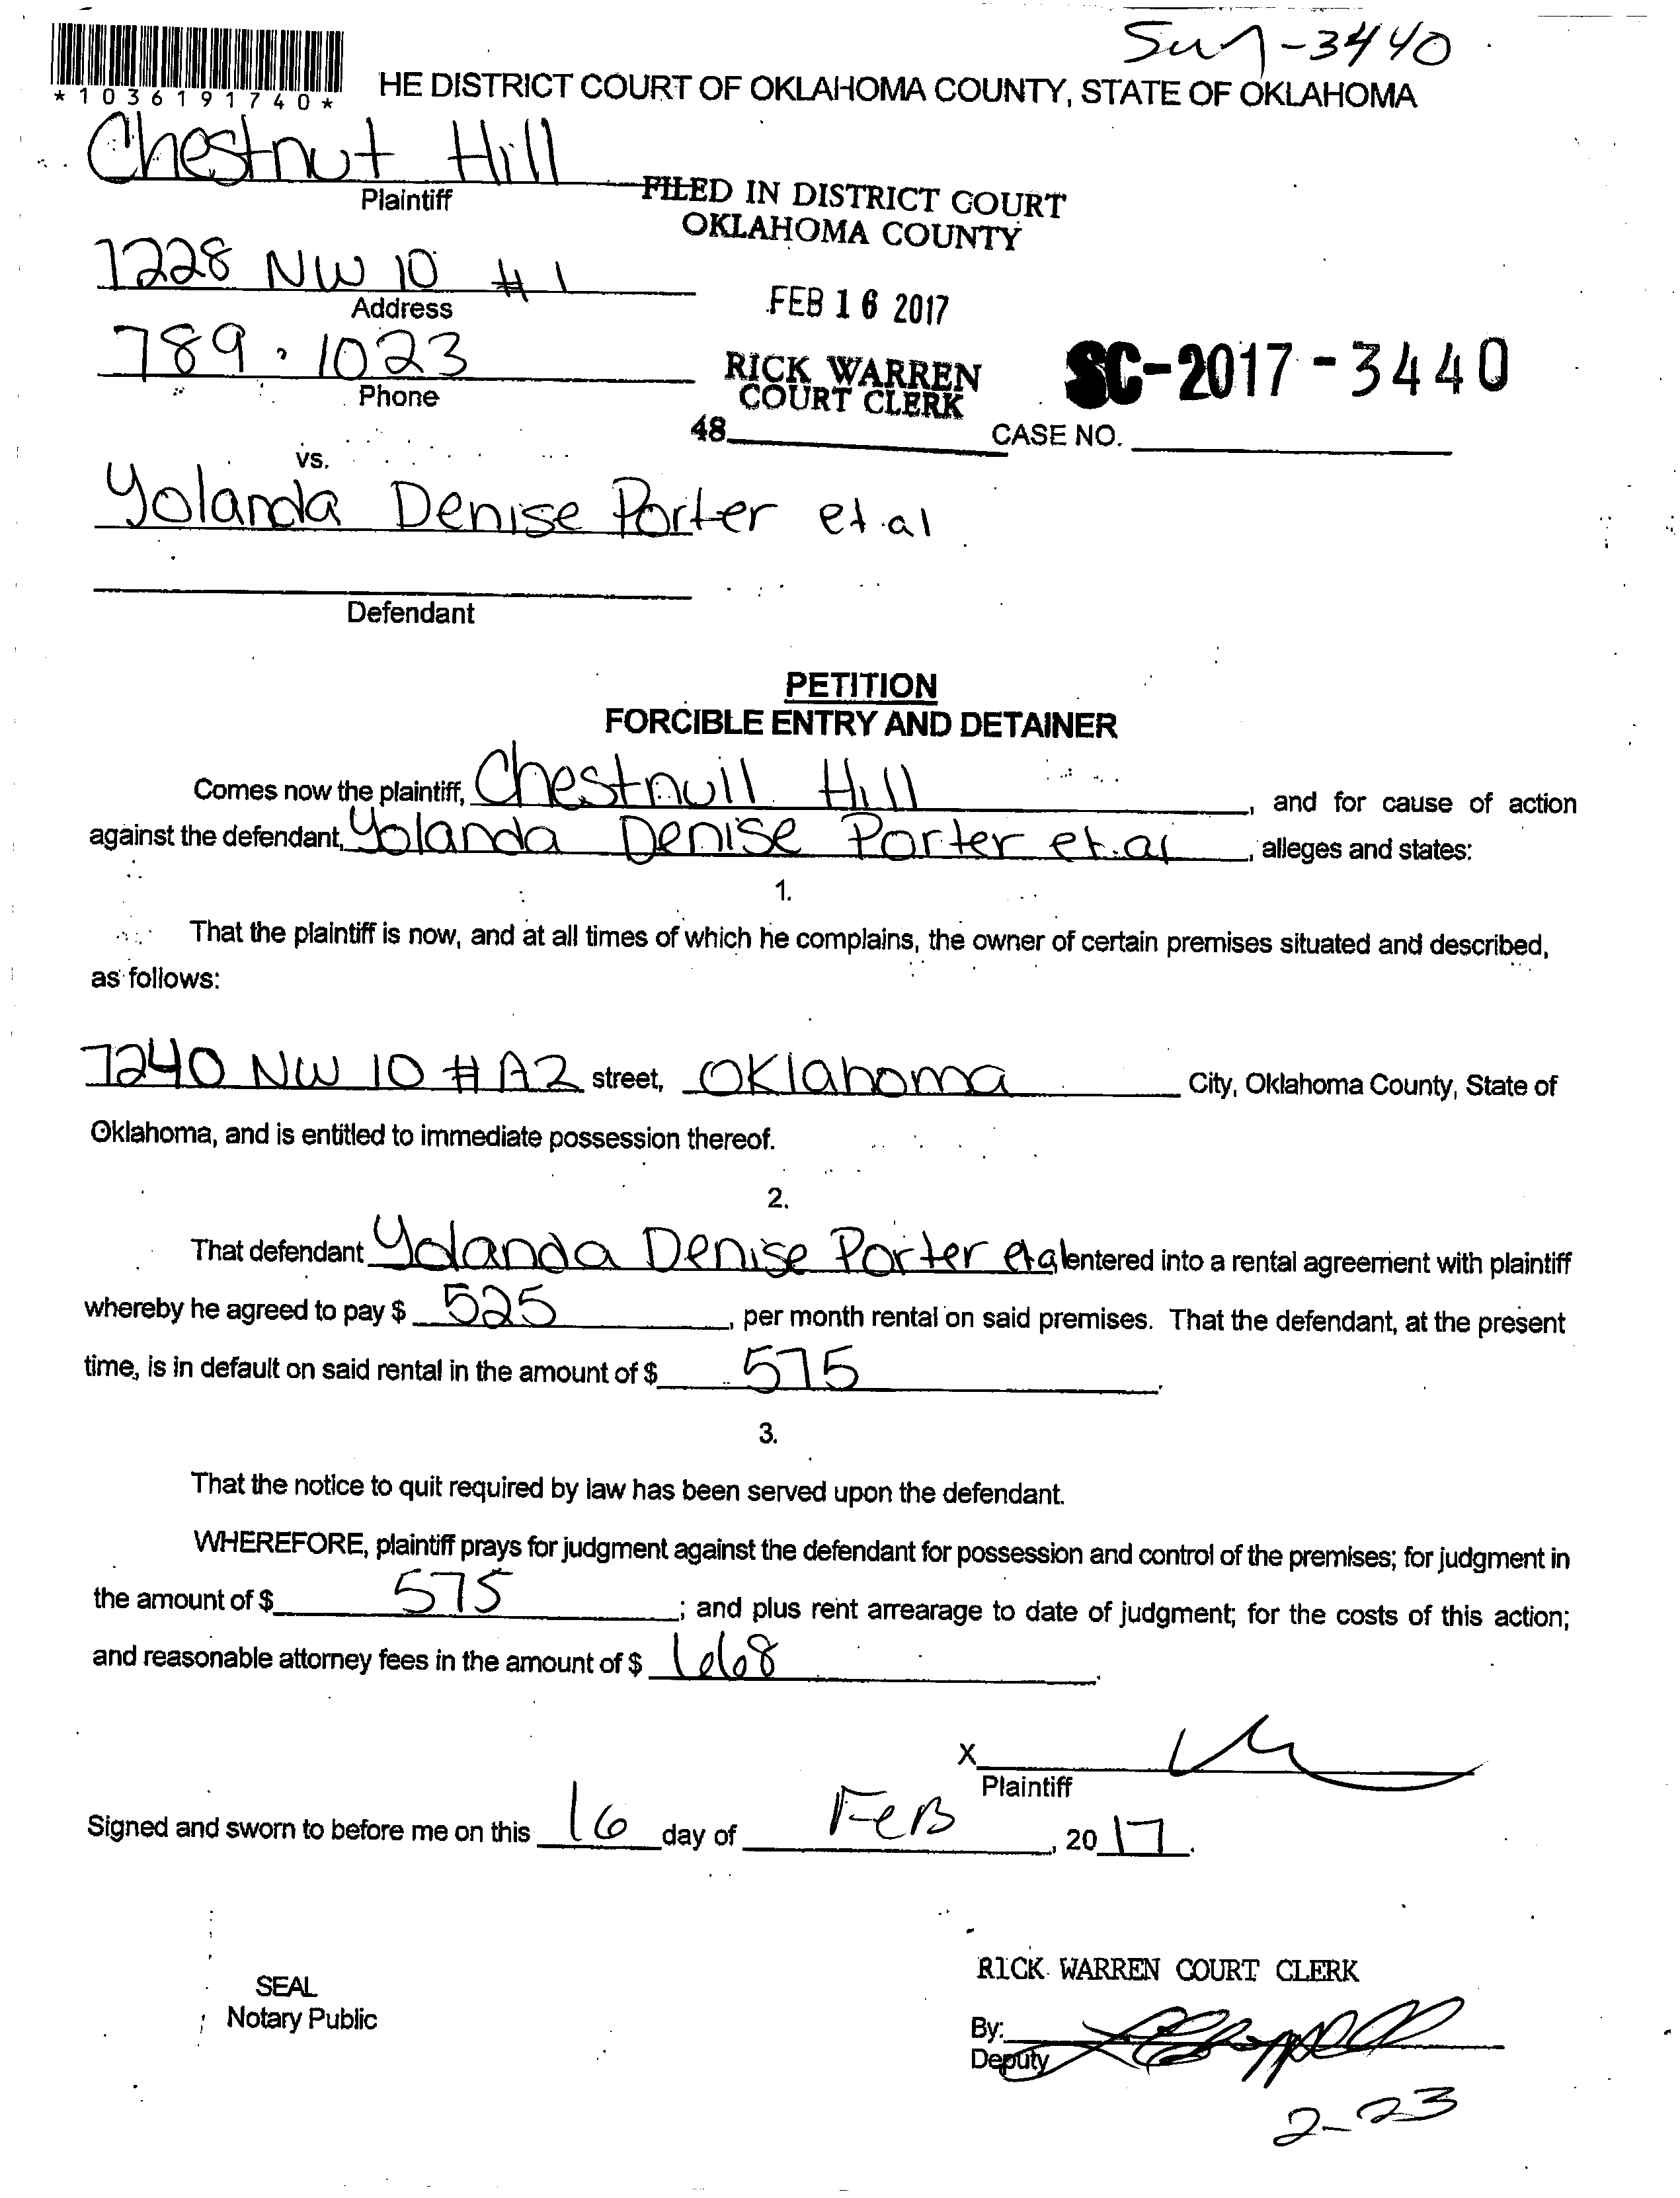 Sm 7-3440
*1036191740*
HE DISTRICT COURT OF OKLAHOMA COUNTY, STATE OF OKLAHOMA
Chestnut Hill
Plaintiff
FILED IN DISTRICT COURT
OKLAHOMA COUNTY
7228 NW 10 #1
Address
FEB 16 2017
789-1023
Phone
RICK WARREN
COURT CLERK
SC-2017-3440
48
CASE NO.
vs.
Yolanda Denise Porter et al
Defendant
PETITION
FORCIBLE ENTRY AND DETAINER
Comes now the plaintiff, Chestnutt Hill, and for cause of action
against the defendant, Yolanda Denise Porter et.al, alleges and states:
1.
That the plaintiff is now, and at all times of which he complains, the owner of certain premises situated and described,
as follows:
7240 NW 10 #A2 street, Oklahoma City, Oklahoma County, State of
Oklahoma, and is entitled to immediate possession thereof.
2.
That defendant Yolanda Denise Porter et al entered into a rental agreement with plaintiff
whereby he agreed to pay $ 525, per month rental on said premises. That the defendant, at the present
time, is in default on said rental in the amount of $ 575.
3.
That the notice to quit required by law has been served upon the defendant.
WHEREFORE, plaintiff prays for judgment against the defendant for possession and control of the premises; for judgment in
the amount of $ 575; and plus rent arrearage to date of judgment; for the costs of this action;
and reasonable attorney fees in the amount of $ 168.
X
Plaintiff
Signed and sworn to before me on this 16 day of FeB, 2017.
SEAL
Notary Public
RICK WARREN COURT CLERK
By:
Deputy
2-23